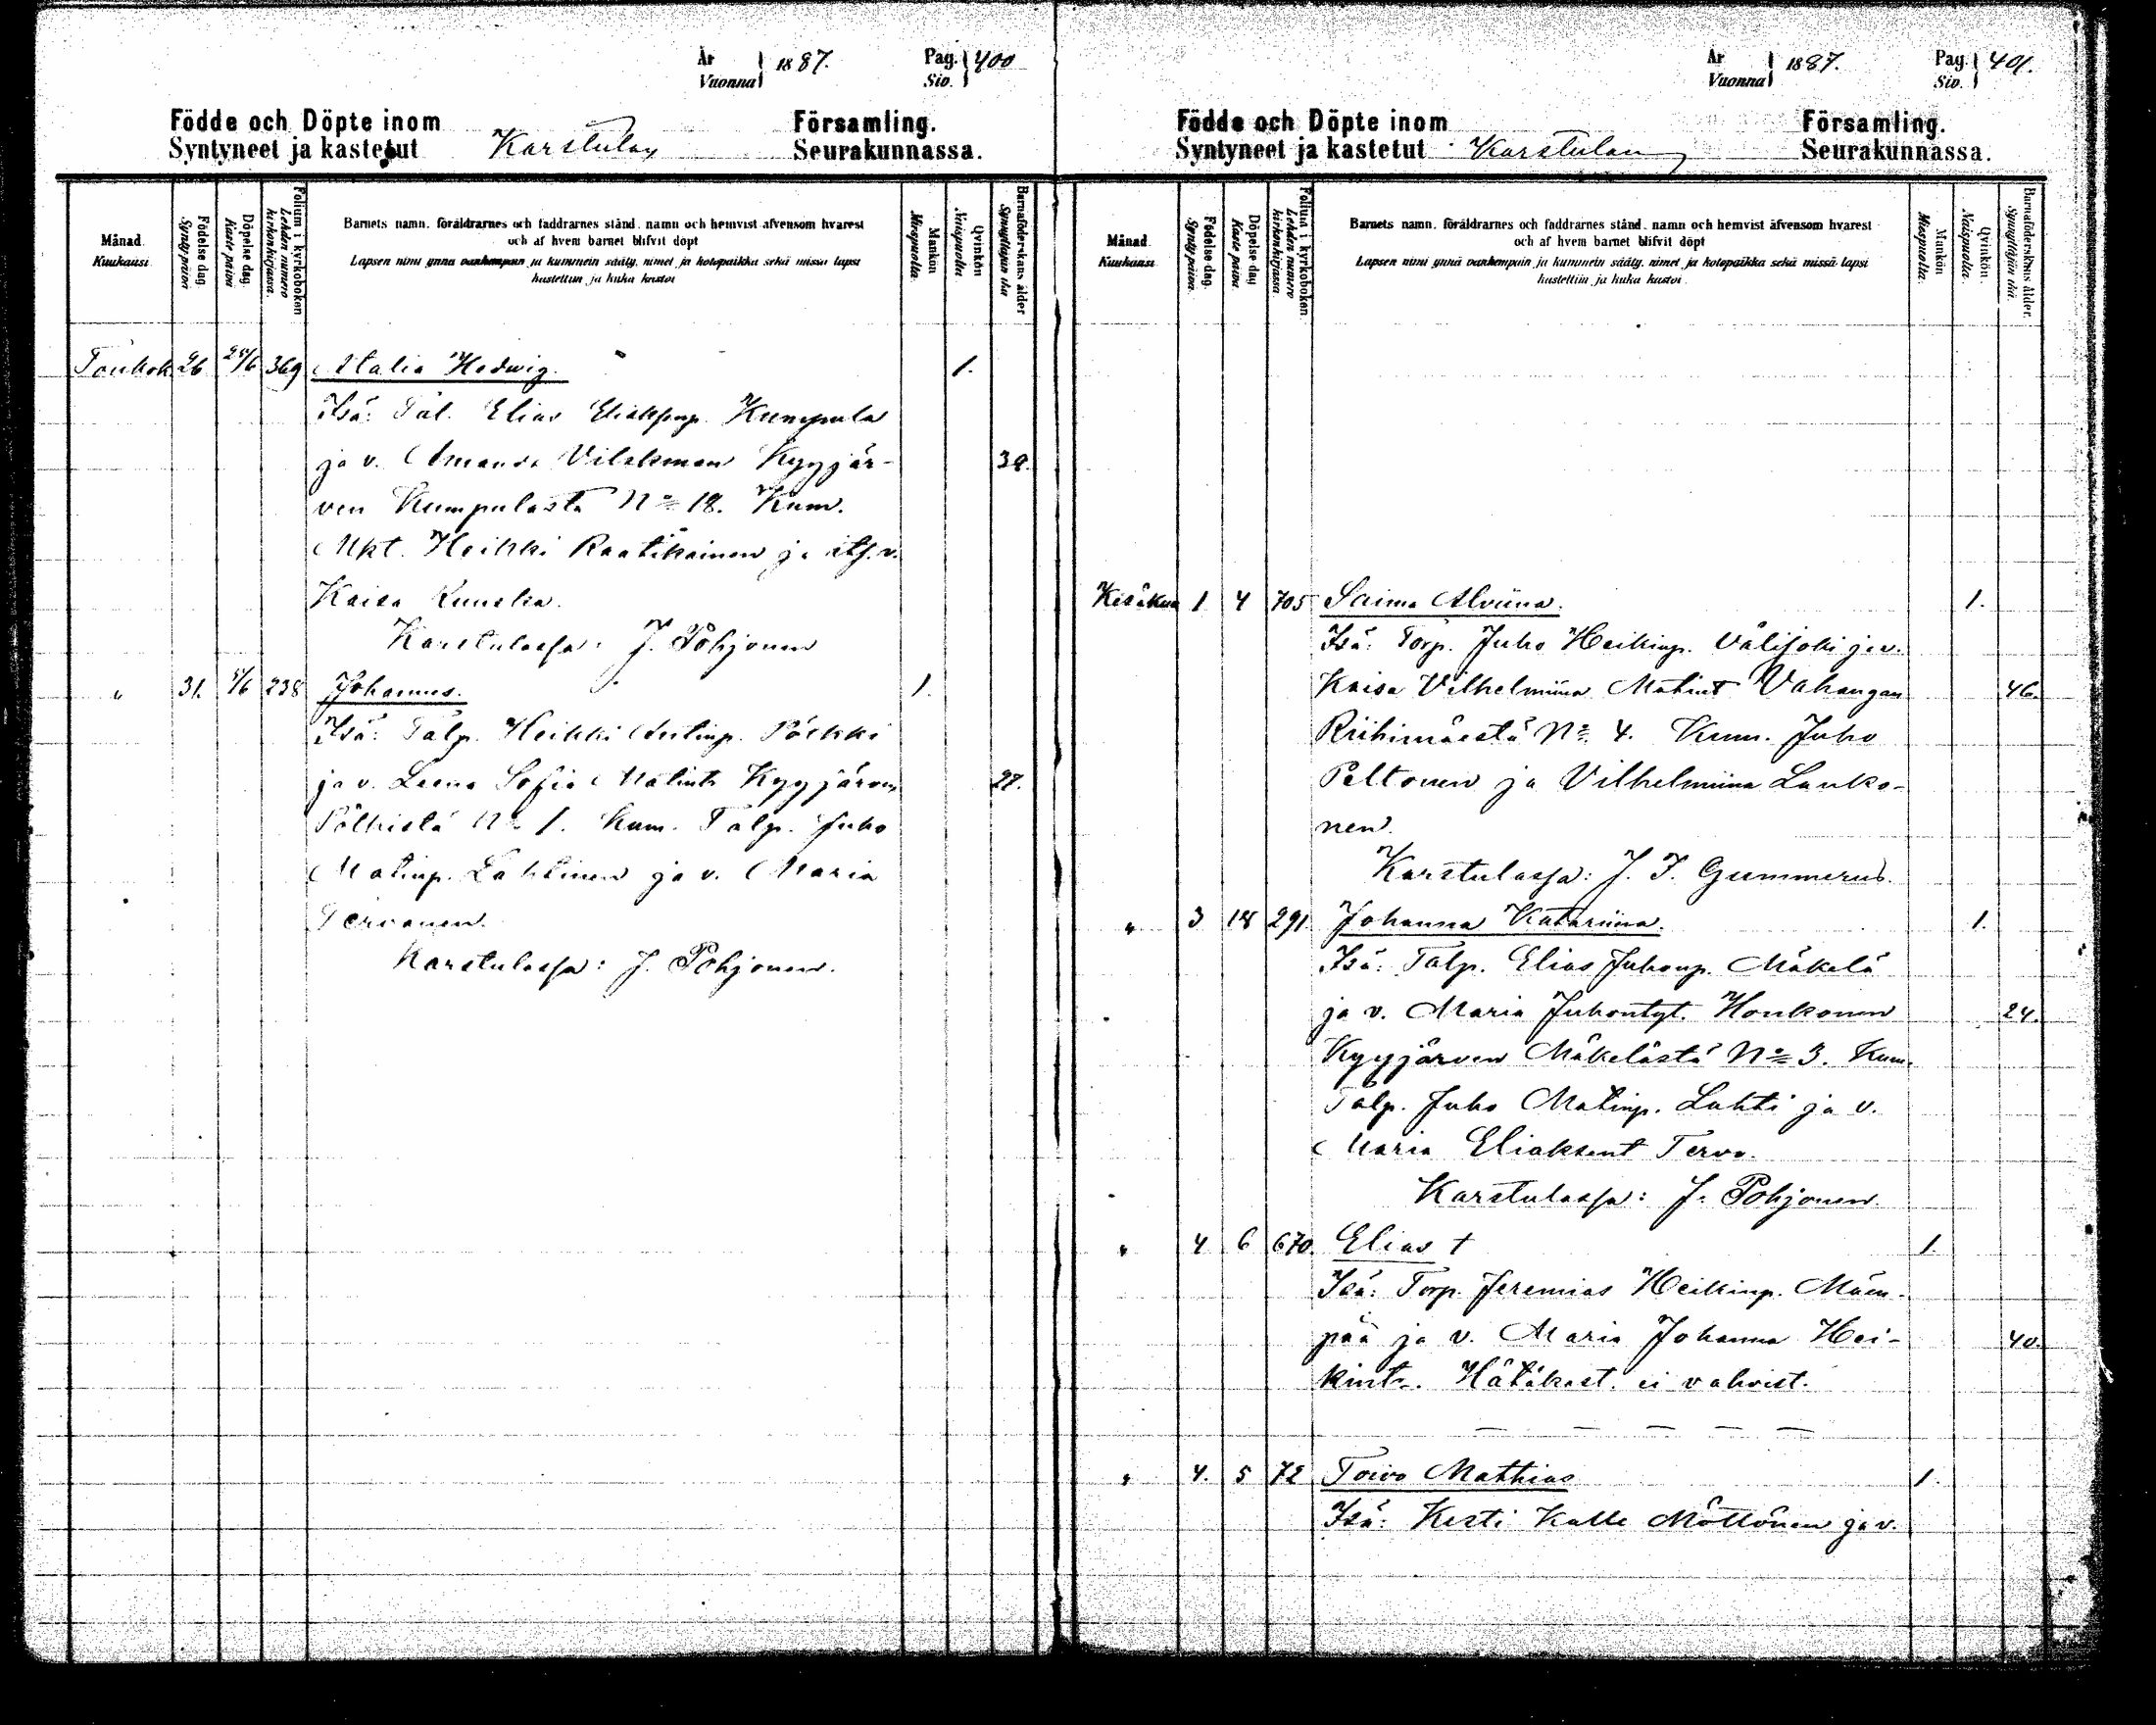 År 1887. Pag. 400
Vuonna Siv.
Födde och Döpte inom Församling.
Syntyneet ja kastetut Karstulan Seurakunnassa.
Månad Kuukausi
Födelse dag. Syntymäpäivä
Döpelse dag. Kaste päivä
Folium i kyrkoboken Lehden numero kirkonkirjassa.
Barnets namn, föräldrarnes och faddrarnes stånd, namn och hemvist äfvensom hvarest
och af hvem barnet blifvit döpt
Lapsen nimi ynnä vanhempain ja kummein sääty, nimet ja kotopaikka sekä missä lapsi
kastettiin ja kuka kastoi
Mankön Miespuolia.
Qvinkön Naispuolia.
Barnaföderskans ålder
Toukok. 26 369 Atalia Hedwig. 1.
Isä: Tal. Elias Kumpula
ja v. Amanda Vilckman Kyyjär- 39.
ven Kumpulasta No 18. Kum.
Mkt. Heikki Raatikainen ja its. v.
Kaisa
Karstulassa: J. Pohjonen
" 31. 5/6 238 Johannes. 1.
Isä: Talp. Heikki Antinp. Pölkki
ja v. Leena Sofia Matint. Kyyjärven 27.
Pölkistä No 1. Kum. Talp. Juho
Matinp. Lahtinen ja v. Maria
Tervonen.
Karstulassa: J. Pohjonen.
År 1887. Pag. 401.
Vuonna Siv.
Födde och Döpte inom Församling.
Syntyneet ja kastetut Karstulan Seurakunnassa.
Månad. Kuukausi
Födelse dag.
Döpelse dag Kaste päivä.
Folium i kyrkoboken Lehden numero kirkonkirjassa.
Barnets namn, föräldrarnes och faddrarnes stånd, namn och hemvist äfvensom hvarest
och af hvem barnet blifvit döpt
Lapsen nimi ynnä vanhempain ja kummein sääty, nimet ja kotopaikka sekä missä lapsi
kastettiin ja kuka kastoi.
Mankön Miespuolia.
Qvinkön. Naispuolia.
Barnaföderskans ålder.
Kesäkuu 1 4 705 Saima Alviina. 1.
Isä: Torp. Juho Heikinp. Välijoki ja v.
Kaisa Vilhelmiina Matint Vahangan 46.
Riihimäestä No 4. Kum. Juho
Peltonen ja Vilhelmiina Lauko-
nen.
Karstulassa: J. F. Gummerus.
" 3 18 291. Johanna Katariina. 1.
Isä: Talp. Elias Juhonp. Mäkelä
ja v. Maria Juhontyt. Honkonen 24.
Kyyjärven Mäkelästä No 3. Kum.
Talp. Juho Matinp. Lahti ja v.
Maria Eliaksent Tervo.
Karstulassa: J. Pohjonen.
" 4 6 670. Elias † 1.
Isä: Torp. Jeremias Heikinp. Mäen-
pää ja v. Maria Johanna Hei- 40.
kint. Hätäkast. ei vahvist.
" 4. 5 72 Toivo Mathias 1.
Isä: Kesti Kalle Möttönen ja v.